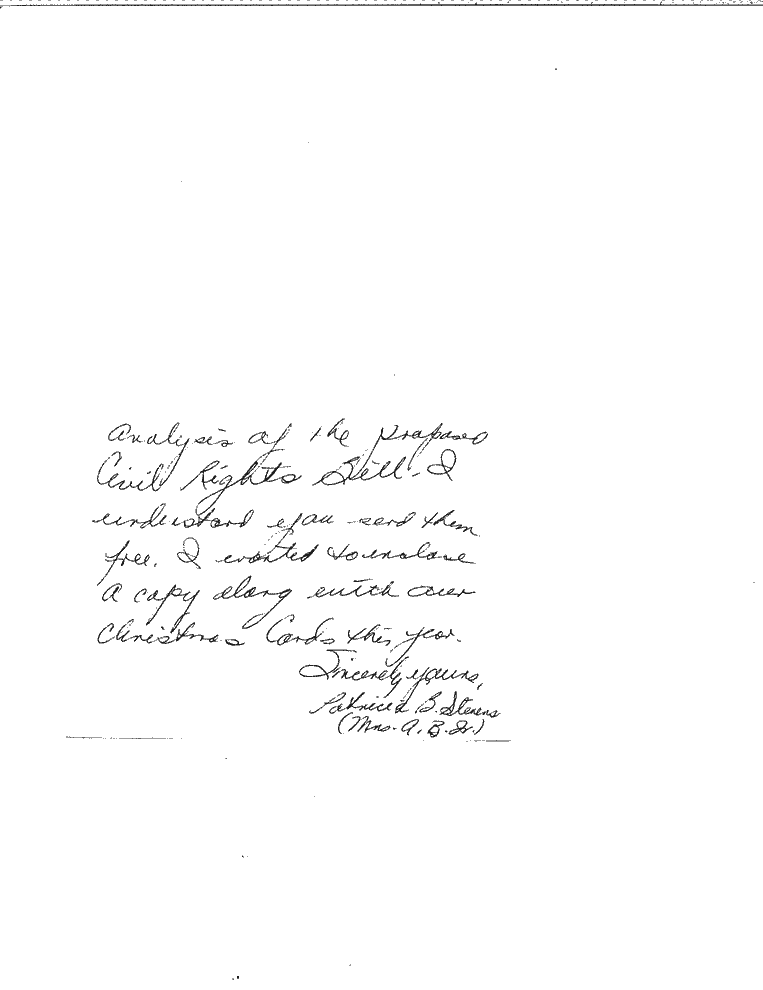 Analysis of the proposed
Civil Rights Bill. I
understand you send them
free. I wanted to enclose
a copy along with our
Christmas Cards this year.
Sincerely yours,
Patricia B. Stevens
(Mrs. A. B. Jr.)